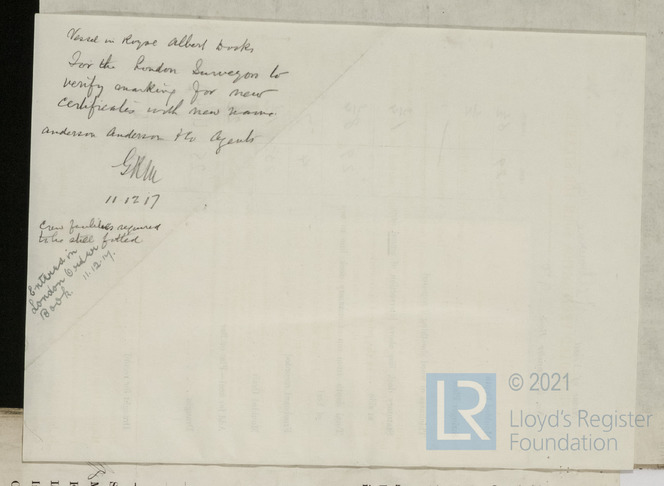 Vessel in Royal Albert Docks
For the London Surveyors to
verify marking for new
certificates with new name
Anderson Anderson & Co Agents
11 12 17
Crew facilities required
to be still fitted
Entered in
London Order
Book. 11.12.17.
LR
© 2021
Lloyd's Register
Foundation